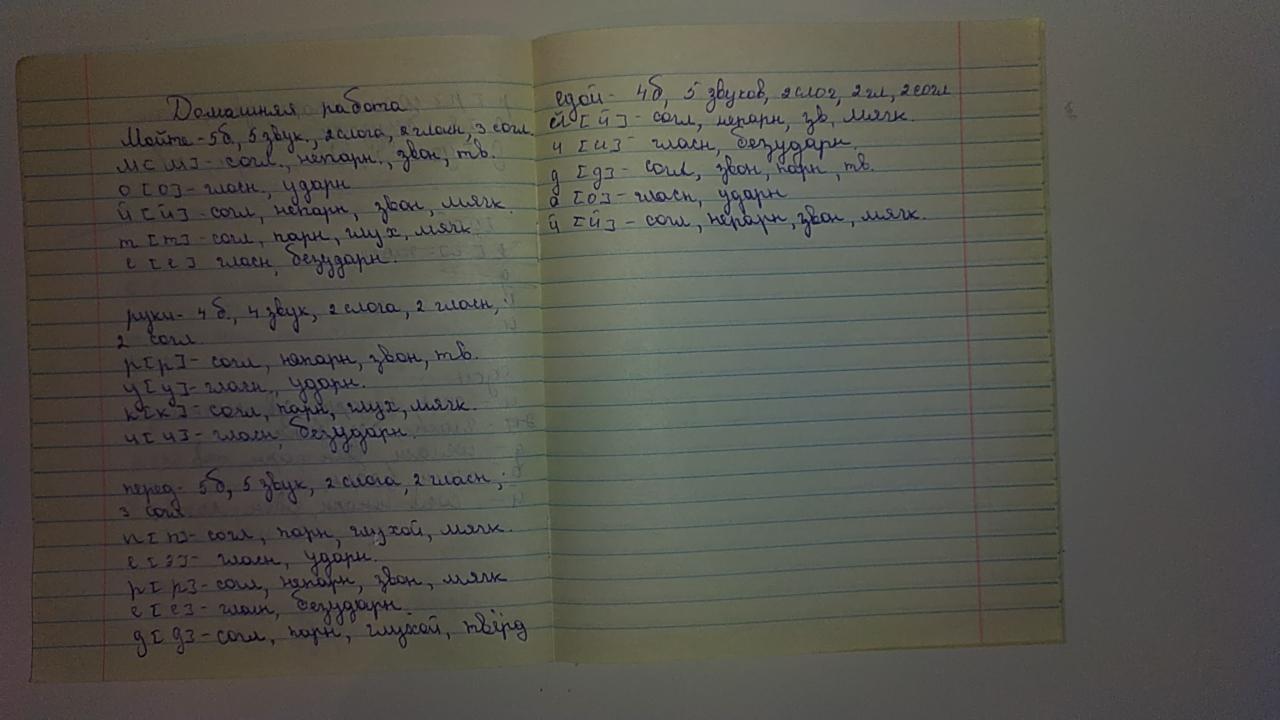 Домашняя работа
Мойте - 5б, 5 звук., 2 слога, 2 гласн, 3 согл.
м [м] - согл., непарн., звон, тв.
о [о] - гласн., ударн
й [й] - согл, непарн, звон, мягк.
т [т] - согл, парн, глух, мягк.
е [е] гласн, безударн.
руки - 4б., 4 звук, 2 слога, 2 гласн,
2 согл.
р [р] - согл, непарн, звон, тв.
у [у] - гласн., ударн.
к [к'] - согл, парн, глух, мягк.
и [и] - гласн, безударн.
перед - 5б, 5 звук, 2 слога, 2 гласн,
3 согл
п [п] - согл, парн, глухой, мягк.
е [э] - гласн, ударн.
р [р] - согл, непарн, звон, мягк
е [е] - гласн, безударн.
д [д] - согл, парн, глухой, твёрд
едой - 4б, 5 звуков, 2 слог, 2 гл, 2 согл
[й] - согл, непарн, зв, мягк.
и [и] - гласн, безударн.
д [д] - согл, звон, парн, тв.
о [о] - гласн, ударн
й [й] - согл, непарн, звон, мягк.